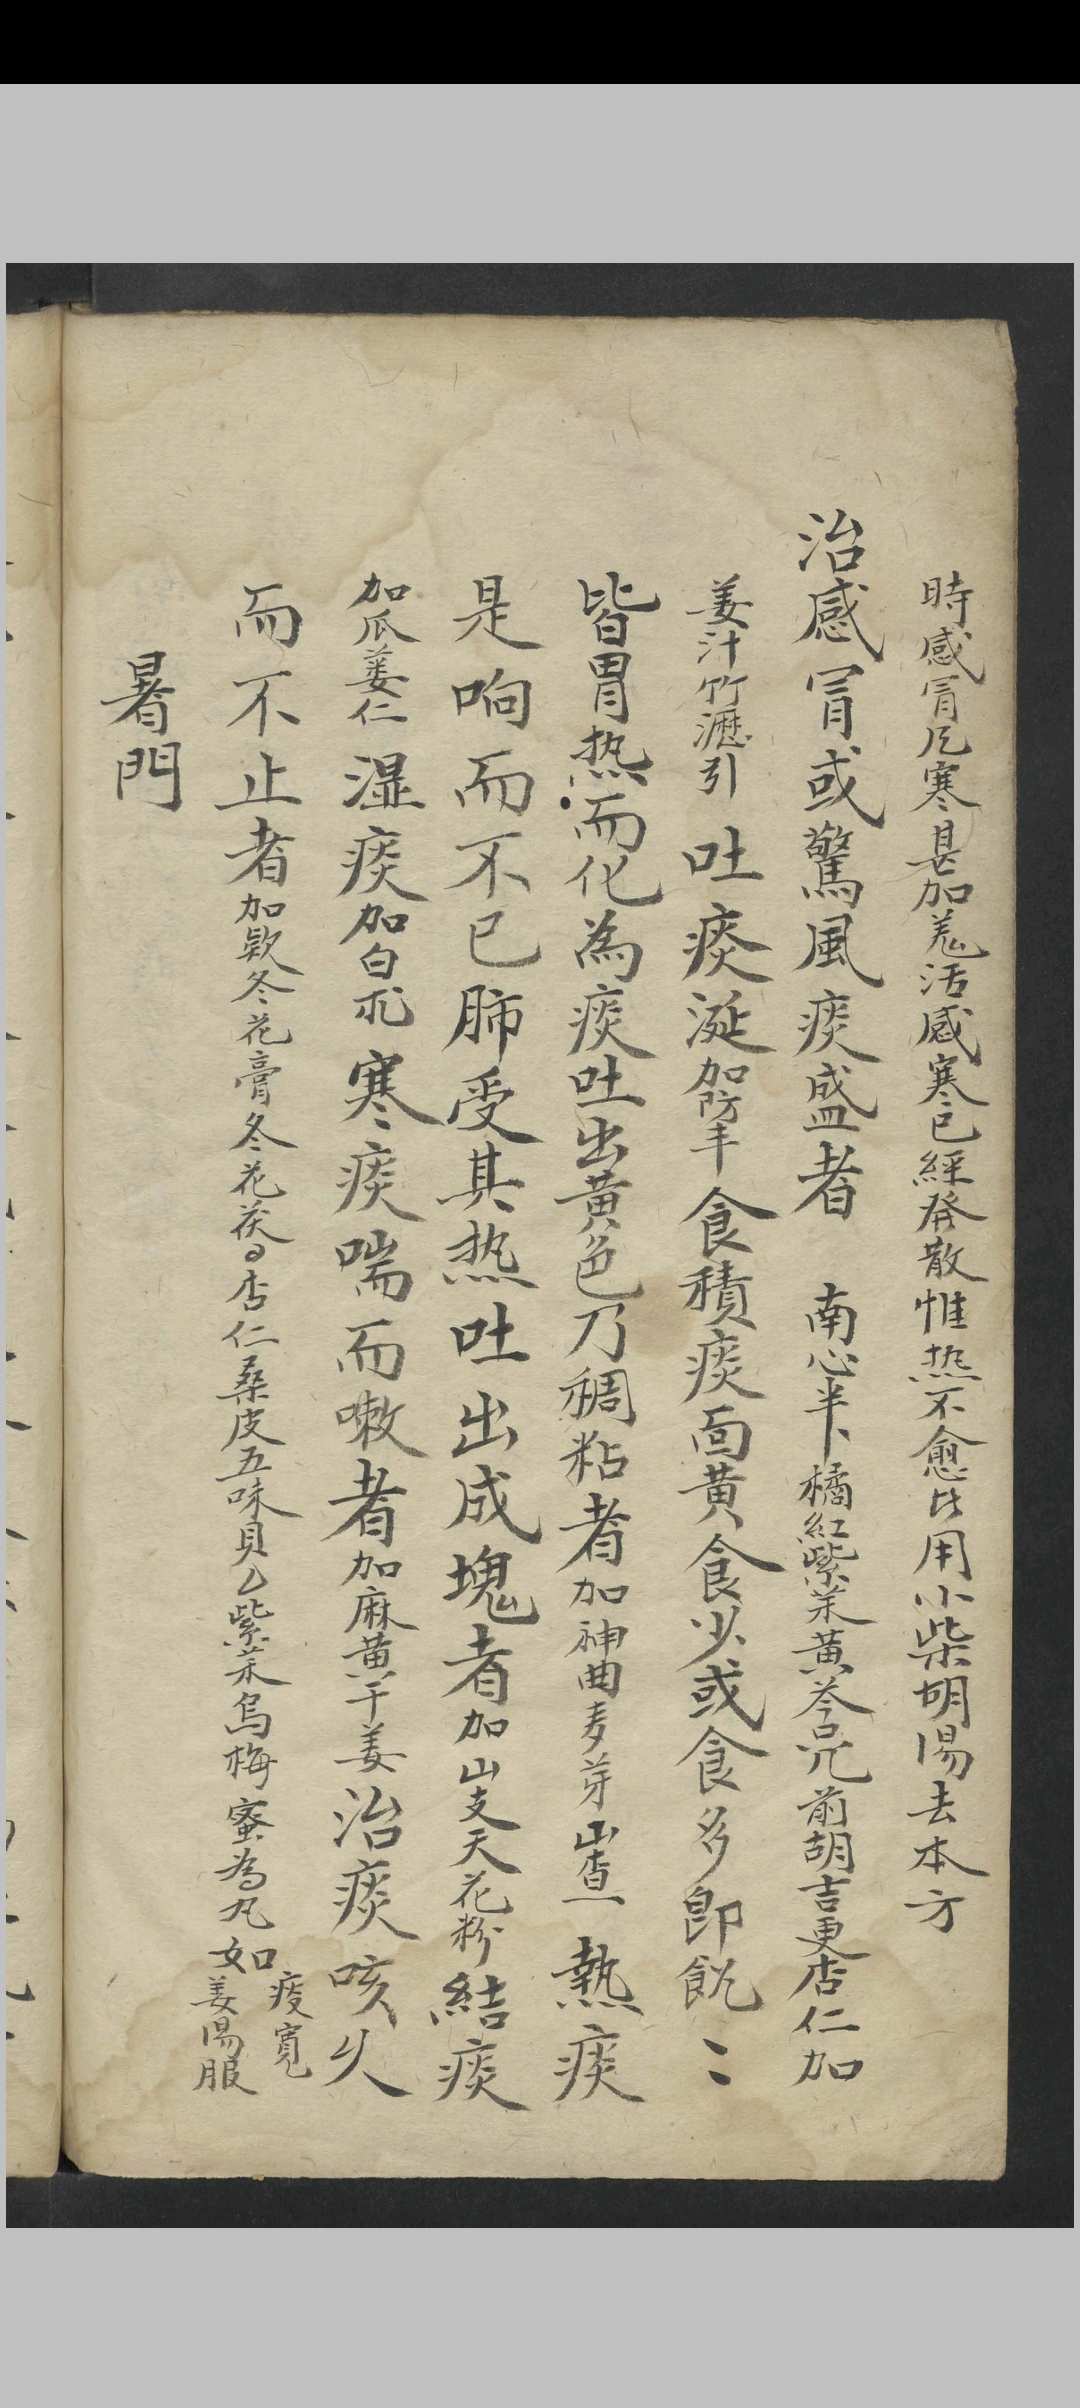 時感冒凡寒甚加羗活感寒已經發散惟热不愈比用小柴胡湯去本方
治感冒或驚風痰盛者 南心半卜橘紅紫苏黄芩只兀前胡吉更杏仁加
姜汁竹瀝引 吐痰涎加防丰食積痰面黄食少或食多即飽〻
皆胃热而化為痰吐出黄色乃稠粘者加神曲麦芽山查 熱痰
是响而不已肺受其热吐出成塊者加山支天花粉結痰
加瓜蒌仁湿痰加白朮寒痰喘而嗽者加麻黄干姜治痰咳久
而不止者加欵冬花膏冬花茯杏仁桑皮五味貝紫苏烏梅蜜為丸如
姜湯服
暑門